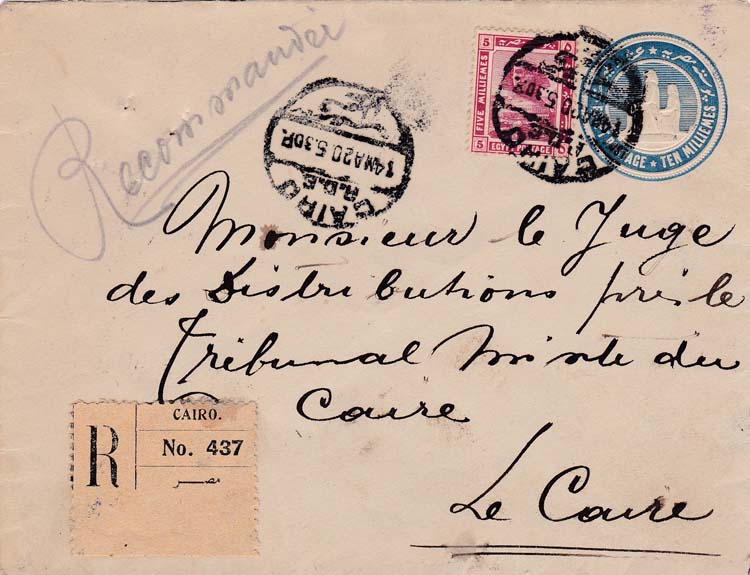 Recommandée
5 5
FIVE MILLIEMES
EGYPT POSTAGE
POSTAGE ★ TEN MILLIEMES
CAIRO
R.D.E
14 MA 20 5.30 P.
CAIRO
Monsieur le Juge
des Distributions près le
Tribunal Mixte du
Caire
Le Caire
R
CAIRO.
No. 437
مصر